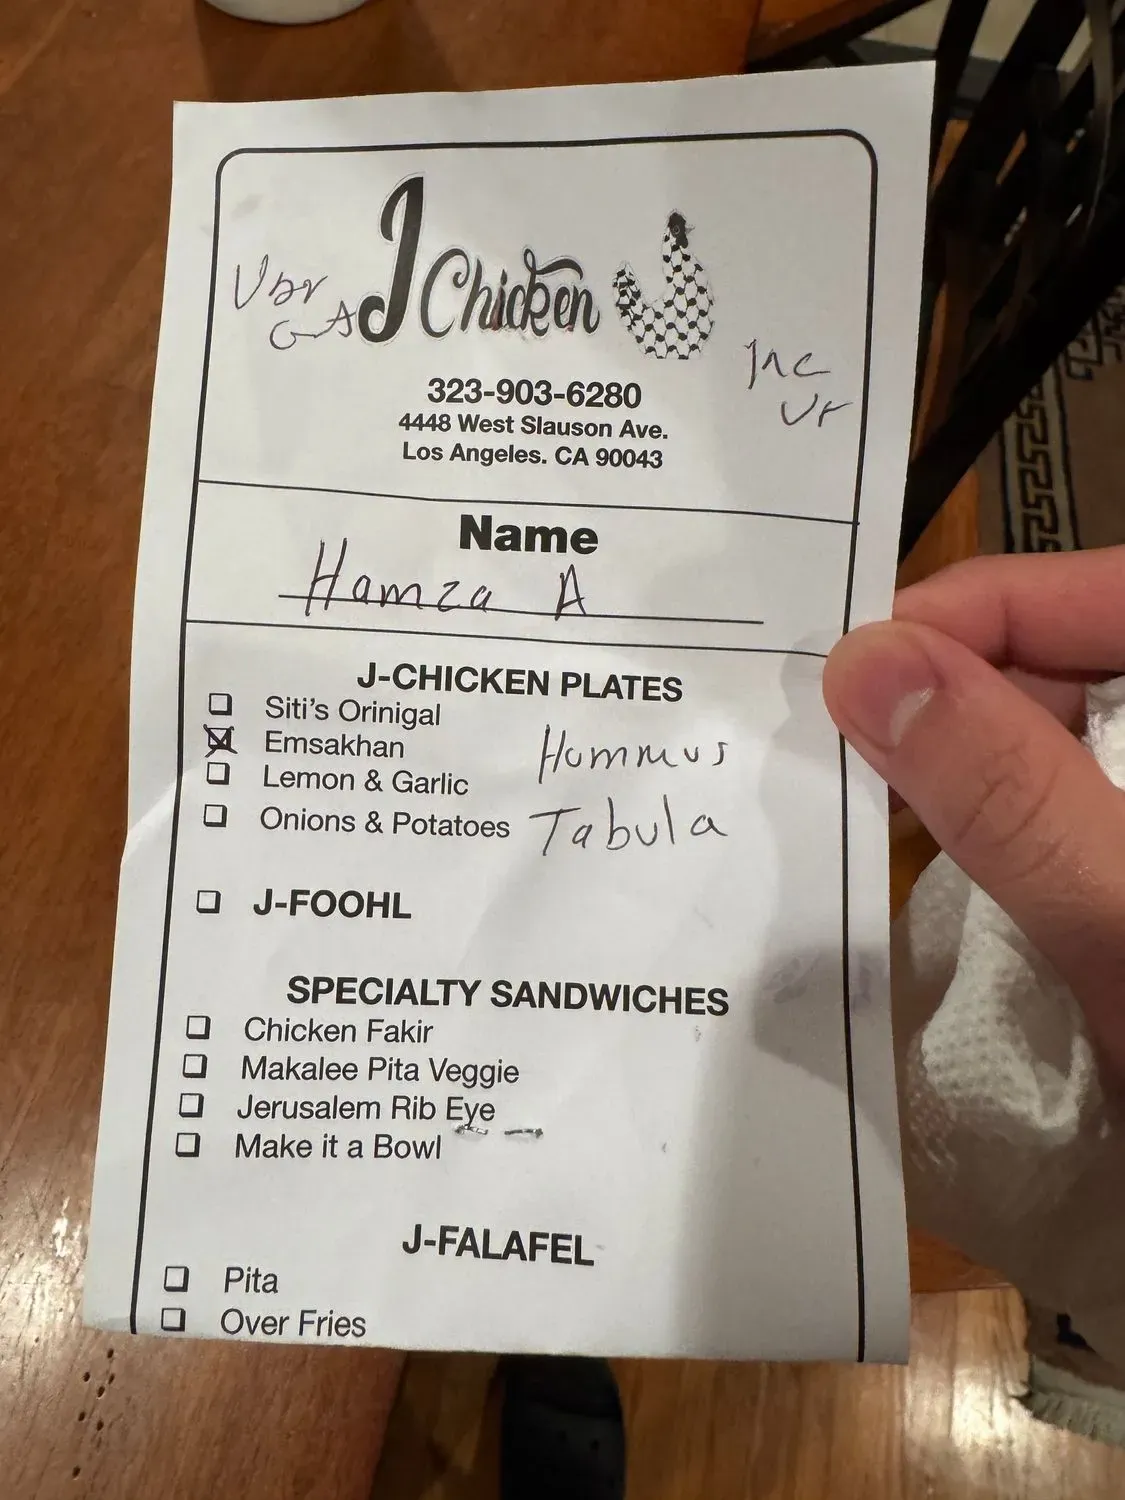 J Chicken
323-903-6280
4448 West Slauson Ave.
Los Angeles. CA 90043
Name
Hamza A
J-CHICKEN PLATES
Siti's Orinigal
Emsakhan
Hummus
Lemon & Garlic
Onions & Potatoes
Tabula
J-FOOHL
SPECIALTY SANDWICHES
Chicken Fakir
Makalee Pita Veggie
Jerusalem Rib Eye
Make it a Bowl
J-FALAFEL
Pita
Over Fries